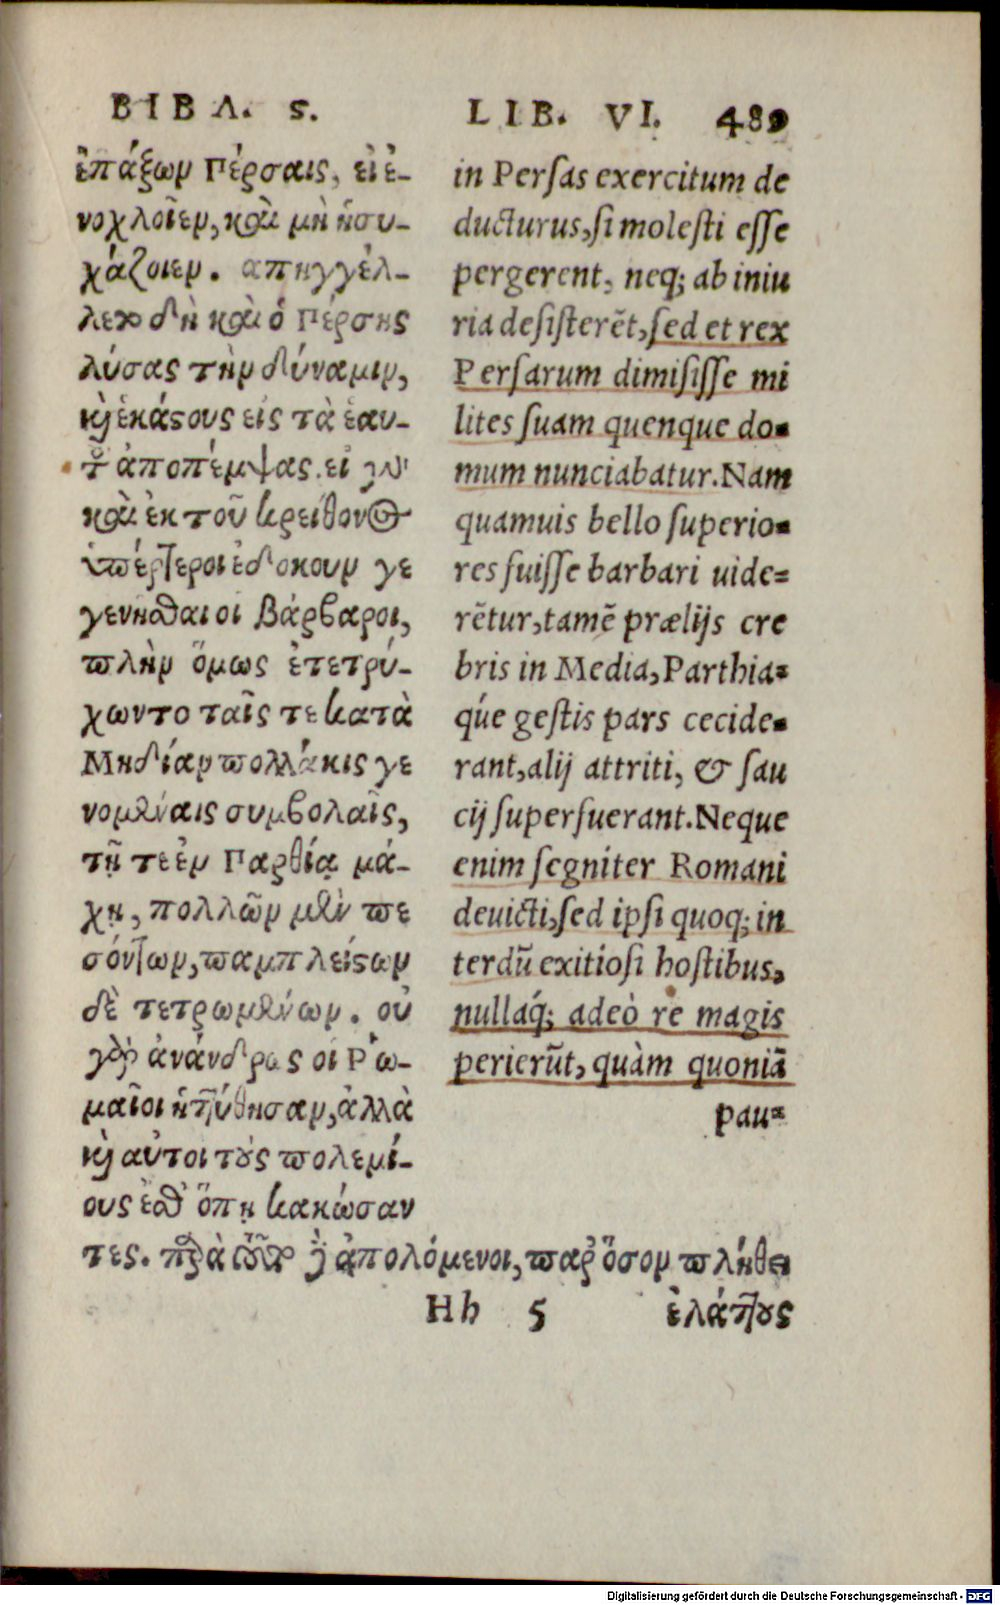 ΒΙΒΛ. ς.
ἐπάξων Πέρσαις, εἰ ἐ-
νοχλοῖεν, καὶ μὴ ἡσυ-
χάζοιεν. ἀπηγγέλ-
λετο δὴ καὶ ὁ Πέρσης
λύσας τὴν δύναμιν,
καὶ ἑκάστους εἰς τὰ ἑαυ-
τῶν ἀποπέμψας. εἰ γὰρ
καὶ ἐκ τοῦ κρείττονος
ὑπέρτεροι ἐδόκουν γε
γενῆσθαι οἱ βάρβαροι,
πλὴν ὅμως ἐτετρύ-
χωντο ταῖς τε κατὰ
Μηδίαν πολλάκις γε
νομέναις συμβολαῖς,
τῇ τε ἐν Παρθίᾳ μά-
χῃ, πολλῶν μὲν πε
σόντων, παμπλείστων
δὲ τετρωμένων. οὐ
γὰρ ἀνάνδρως οἱ Ῥω-
μαῖοι ἡττήθησαν, ἀλλὰ
καὶ αὐτοὶ τοὺς πολεμί-
ους ἔσθ᾽ ὅπῃ κακώσαν
τες. παρὰ τοῦτο δὲ ἀπολόμενοι, παρ᾽ ὅσον πλήθει
Hh 5 ἐλάττους
LIB. VI. 489
in Persas exercitum de
ducturus, si molesti esse
pergerent, neq; ab iniu
ria desisterẽt, sed et rex
Persarum dimisisse mi
lites suam quenque do=
mum nunciabatur. Nam
quamuis bello superio=
res fuisse barbari uide=
rẽtur, tamẽ prælijs cre
bris in Media, Parthia=
q́ue gestis pars cecide=
rant, alij attriti, & sau
cij superfuerant. Neque
enim segniter Romani
deuicti, sed ipsi quoq; in
terdũ exitiosi hostibus,
nullaq́; adeò re magis
perierũt, quàm quoniã
pau=
Digitalisierung gefördert durch die Deutsche Forschungsgemeinschaft - DFG